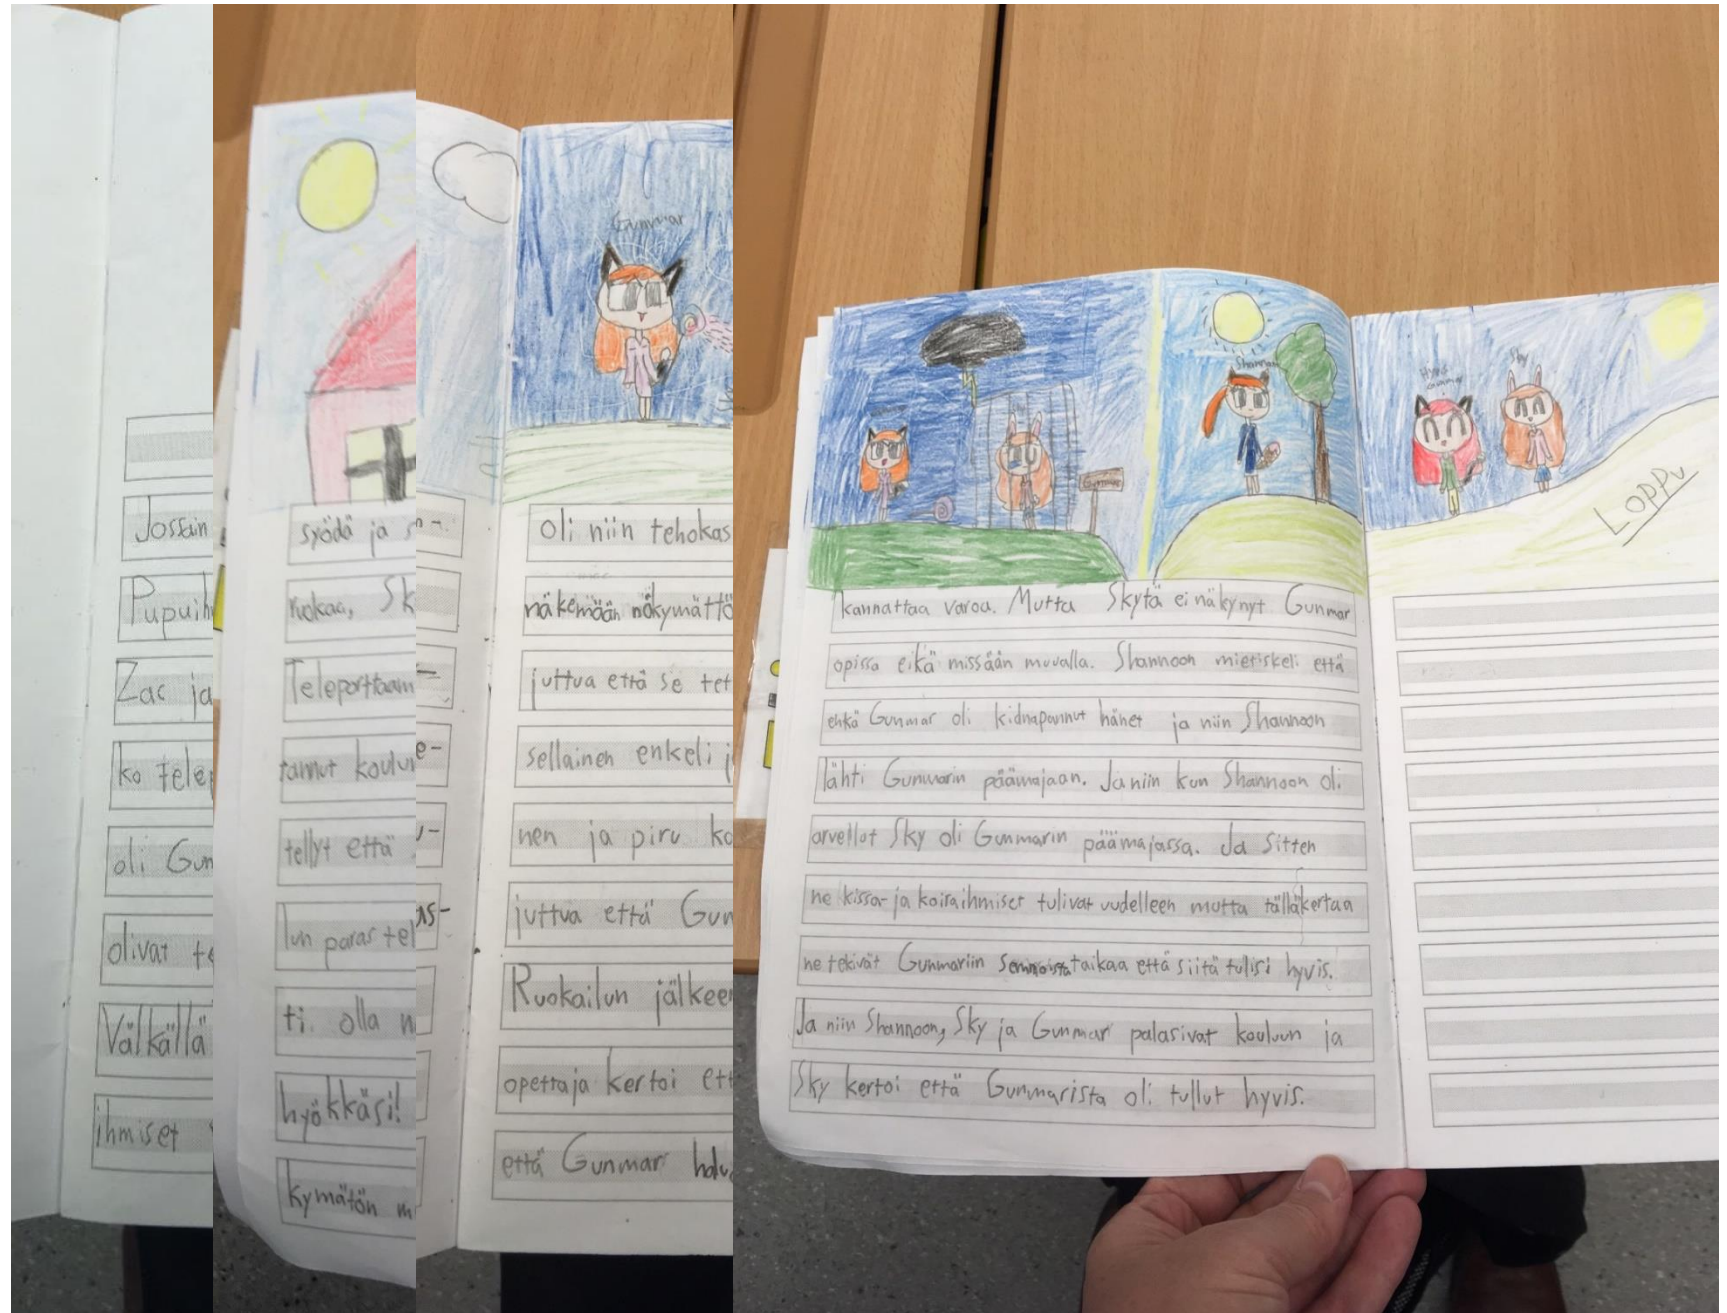 Jossain
Pupuih
Zac ja
ko tele
oli Gun
olivat te
Välkällä
ihmiset
syödä ja s
ruokaa, Sk
Teleporttaam
tannut koulu
tellyt että
lun paras tel
ti olla n
hyökkäsi!
kymätön m
Gunmar
oli niin tehokas
näkemään näkymättö
juttua että se tet
sellainen enkeli j
nen ja piru ko
juttua että Gun
Ruokailun jälkee
opettaja kertoi ett
että Gunmar halu
Shannoon
Gunmar
kannattaa varoa. Mutta Skytä ei näkynyt Gunmar
opissa eikä missään muualla. Shannoon mietiskeli että
ehkä Gunmar oli kidnapannut hänet ja niin Shannoon
lähti Gunmarin päämajaan. Ja niin kun Shannoon oli
arvellut Sky oli Gunmarin päämajassa. Ja sitten
ne kissa- ja koiraihmiset tulivat uudelleen mutta tälläkertaa
ne tekivät Gunmariin taikaa että siitä tulisi hyvis.
Ja niin Shannoon, Sky ja Gunmar palasivat kouluun ja
Sky kertoi että Gunmarista oli tullut hyvis.
Hyvis
Gunmar
Sky
Loppu